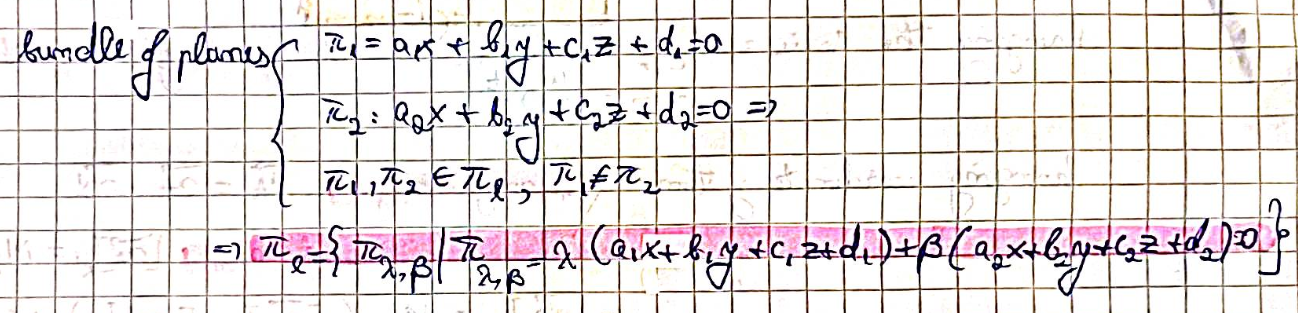 bundle of planes { π₁ = a₁x + b₁y + c₁z + d₁ = 0
π₂ : a₂x + b₂y + c₂z + d₂ = 0 =>
π₁, π₂ ∈ π_ℓ, π₁ ≠ π₂
=> π_ℓ = { π_λ,β | π_λ,β = λ (a₁x + b₁y + c₁z + d₁) + β (a₂x + b₂y + c₂z + d₂) = 0 }